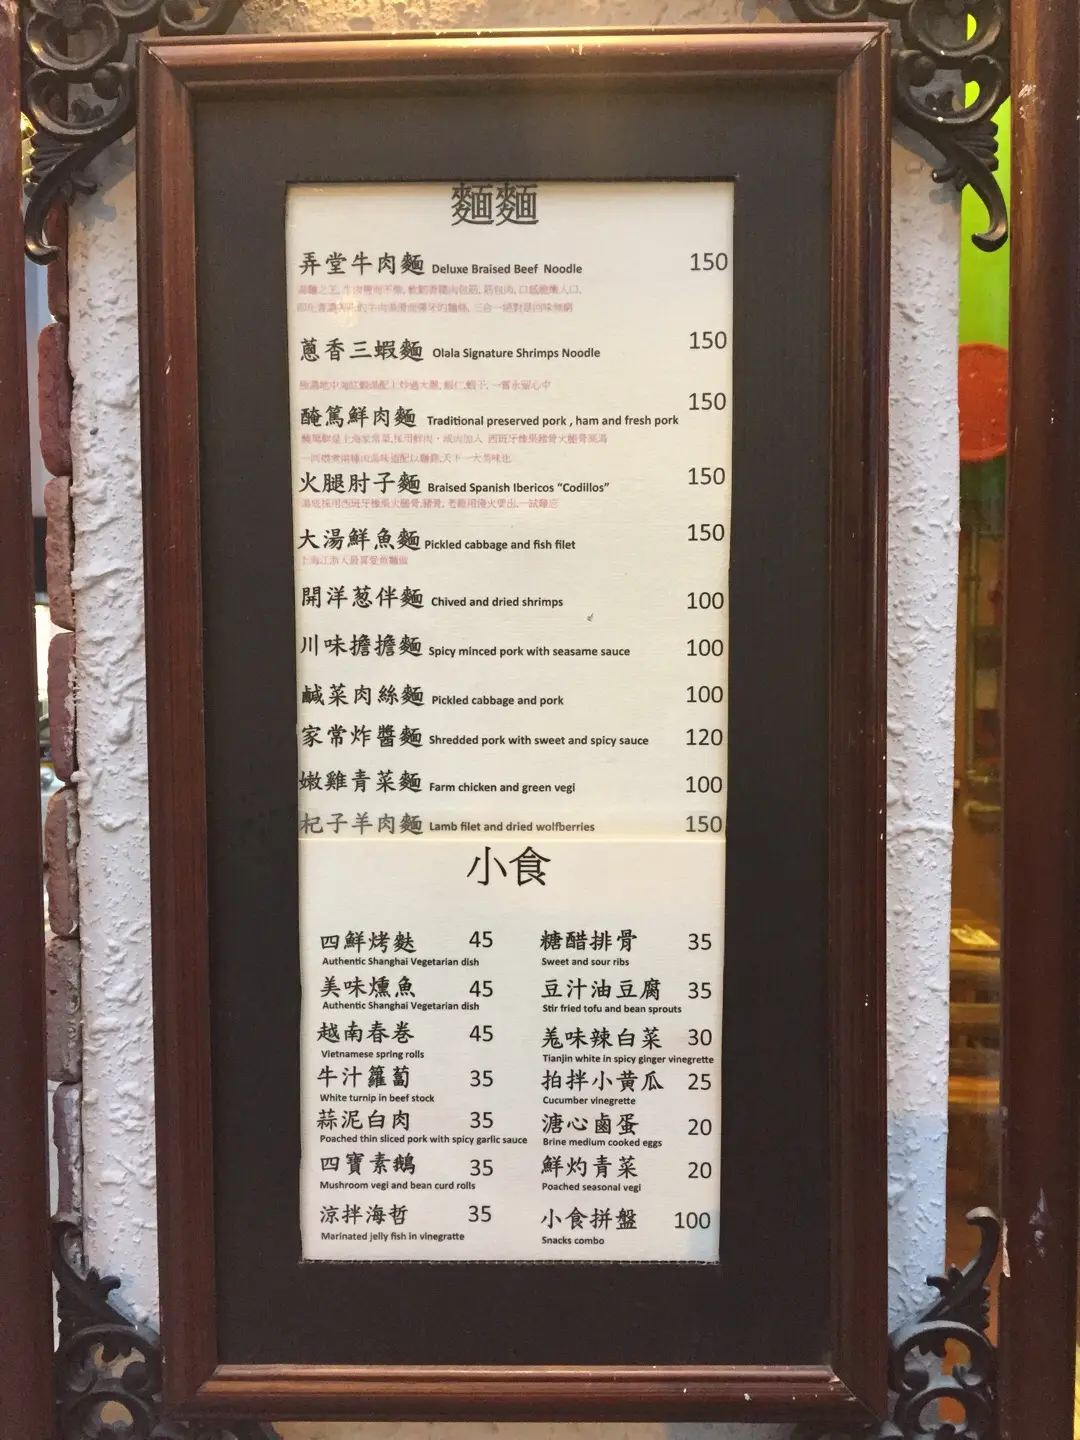 麵麵
弄堂牛肉麵 Deluxe Braised Beef Noodle 150
蔥香三蝦麵 Olala Signature Shrimps Noodle 150
醃篤鮮肉麵 Traditional preserved pork , ham and fresh pork 150
火腿肘子麵 Braised Spanish Ibericos “Codillos” 150
大湯鮮魚麵 Pickled cabbage and fish filet 150
上海江浙人最喜愛魚麵
開洋葱伴麵 Chived and dried shrimps 100
川味擔擔麵 Spicy minced pork with seasame sauce 100
鹹菜肉絲麵 Pickled cabbage and pork 100
家常炸醬麵 Shredded pork with sweet and spicy sauce 120
嫩雞青菜麵 Farm chicken and green vegi 100
杞子羊肉麵 Lamb filet and dried wolfberries 150
小食
四鮮烤麩 45
Authentic Shanghai Vegetarian dish
美味燻魚 45
Authentic Shanghai Vegetarian dish
越南春巻 45
Vietnamese spring rolls
牛汁籮蔔 35
White turnip in beef stock
蒜泥白肉 35
Poached thin sliced pork with spicy garlic sauce
四寶素鵝 35
Mushroom vegi and bean curd rolls
涼拌海哲 35
Marinated jelly fish in vinegratte
糖醋排骨 35
Sweet and sour ribs
豆汁油豆腐 35
Stir fried tofu and bean sprouts
羗味辣白菜 30
Tianjin white in spicy ginger vinegrette
拍拌小黃瓜 25
Cucumber vinegrette
溏心鹵蛋 20
Brine medium cooked eggs
鮮灼青菜 20
Poached seasonal vegi
小食拼盤 100
Snacks combo